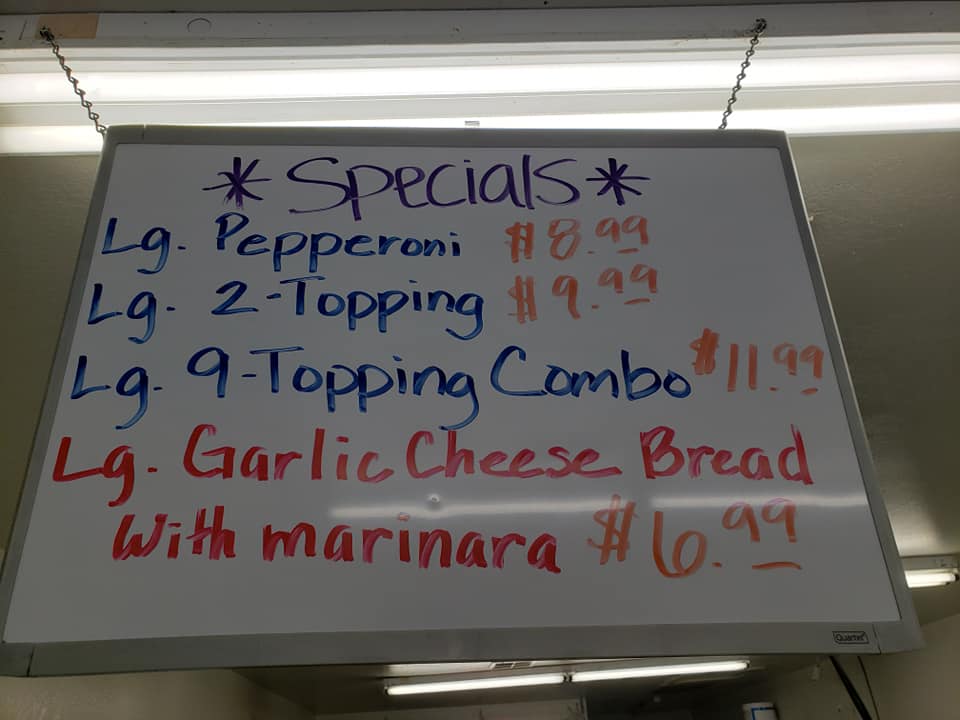 *Specials*
Lg. Pepperoni $8.99
Lg. 2-Topping $9.99
Lg. 9-Topping Combo $11.99
Lg. Garlic Cheese Bread
With marinara $6.99
Quartet